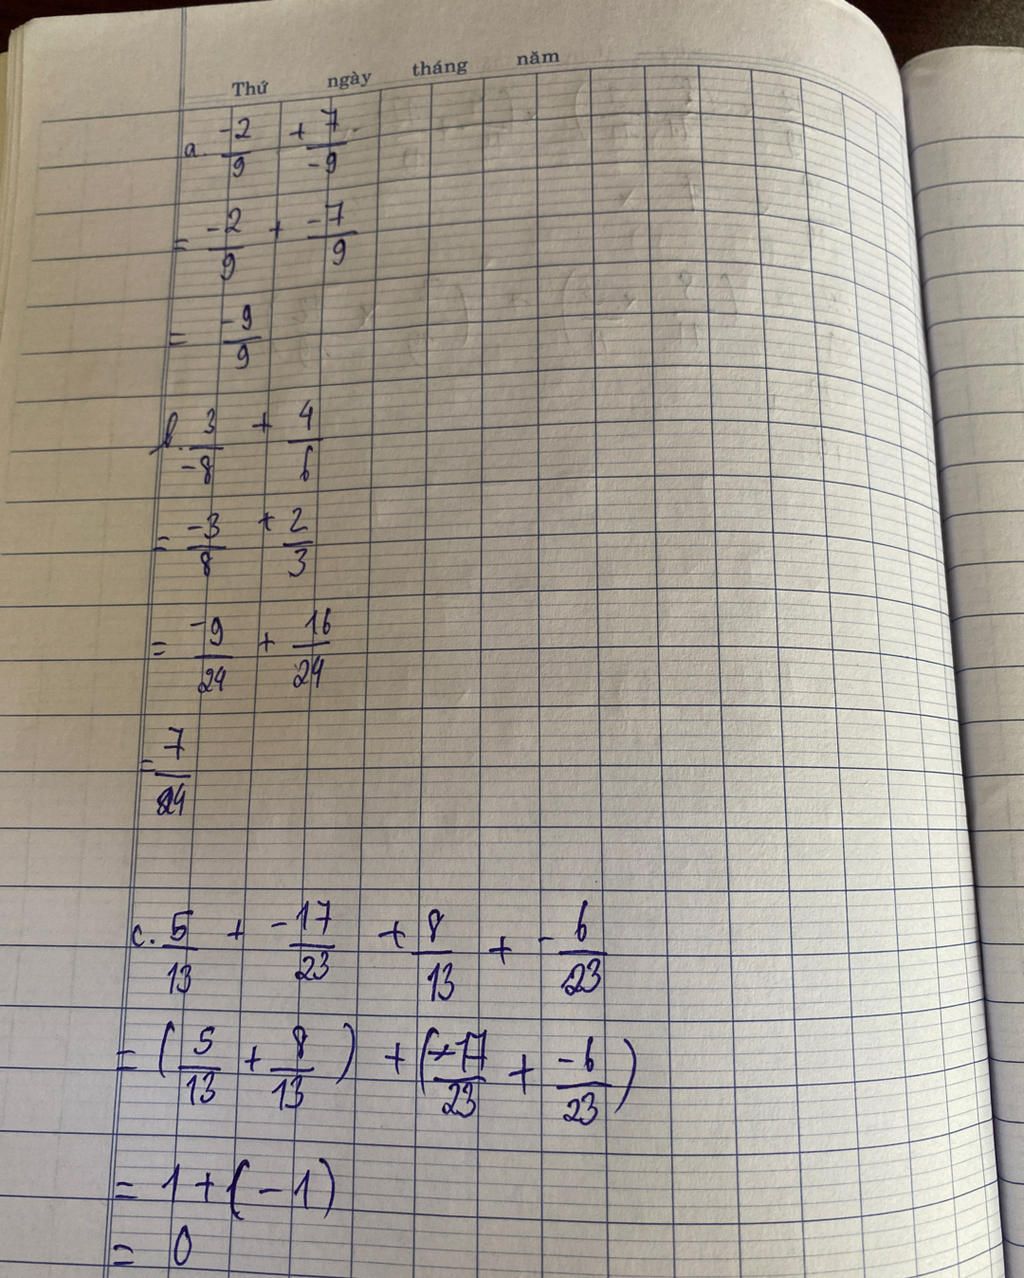 Thứ ngày tháng năm
a. -2/9 + 7/-9
= -2/9 + -7/9
= -9/9
b. 3/-8 + 4/6
= -3/8 + 2/3
= -9/24 + 16/24
= 7/24
c. 5/13 + -17/23 + 8/13 + -6/23
= (5/13 + 8/13) + (-17/23 + -6/23)
= 1 + (-1)
= 0